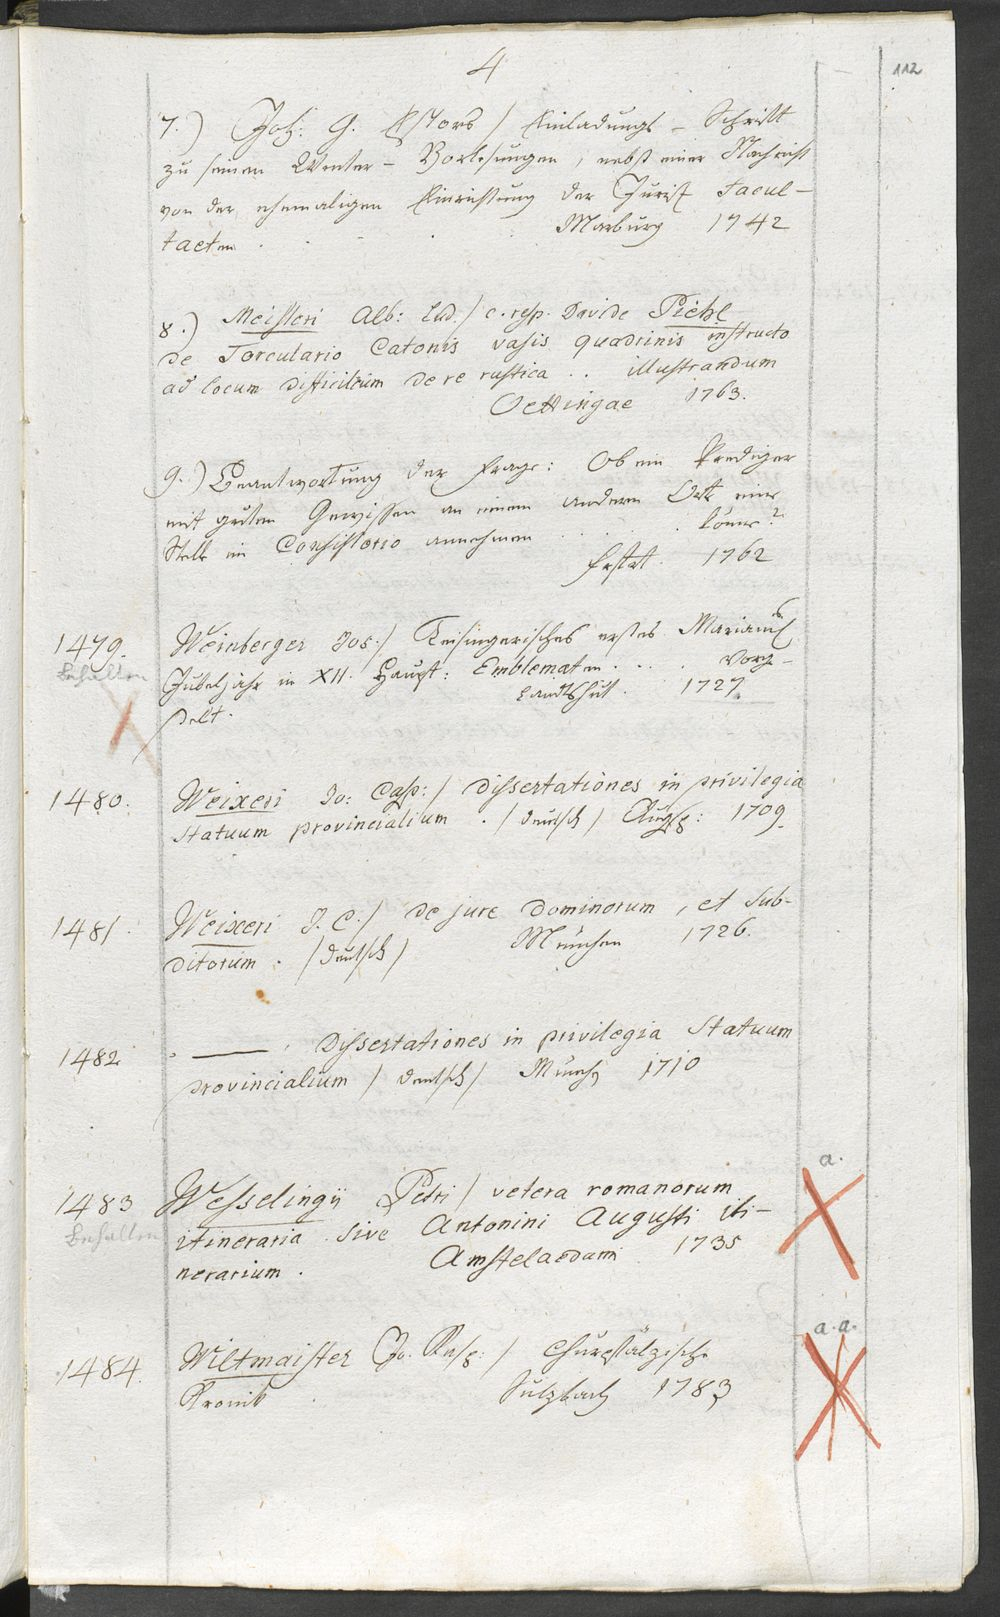 4
112
7.) Joh: G. Estors / Einladungs - Schrift
zu seinen Winter - Vorlesungen, nebst einer Nachricht
von der ehemaligen Einrichtung der Jurist Facul-
taeten . . . . Marburg 1742
8.) Meisteri Alb: Lud: / c. resp. Davide Piehl
de Torculario Catonis vasis quadrinis instructo
ad locum difficilium de re rustica . . illustrandum
Oettingae 1763.
9.) Beantwortung der Frage: Ob ein Prediger
mit guten Gewissen an einem andern Ort eine
Stelle im Consistorio annehmen . . . . könne?
1762
1479. Weinberger Jos: / Freisingerisches erstes Marianisch
behalten
Jubeljahr in XII. Haupt: Emblematen . . . . vorge-
stelt. Landshut. 1727.
1480. Weixeri Jo: Casp: / Dissertationes in privilegia
statuum provincialium . / deutsch / Augsp: 1709.
1481. Weixeri J. C. / de jure dominorum, et sub-
ditorum . / deutsch / München 1726.
1482 . —— . Dissertationes in privilegia Statuum
provincialium / deutsch / Münch 1710
a.
1483 Wesselingii Petri / vetera romanorum
behalten
itineraria . sive Antonini Augusti iti-
nerarium . Amstelaedami 1735
a.a.
1484. Wiltmaister Jo. Kasp: / Churpfälzische
Kronik . Sulzbach 1783